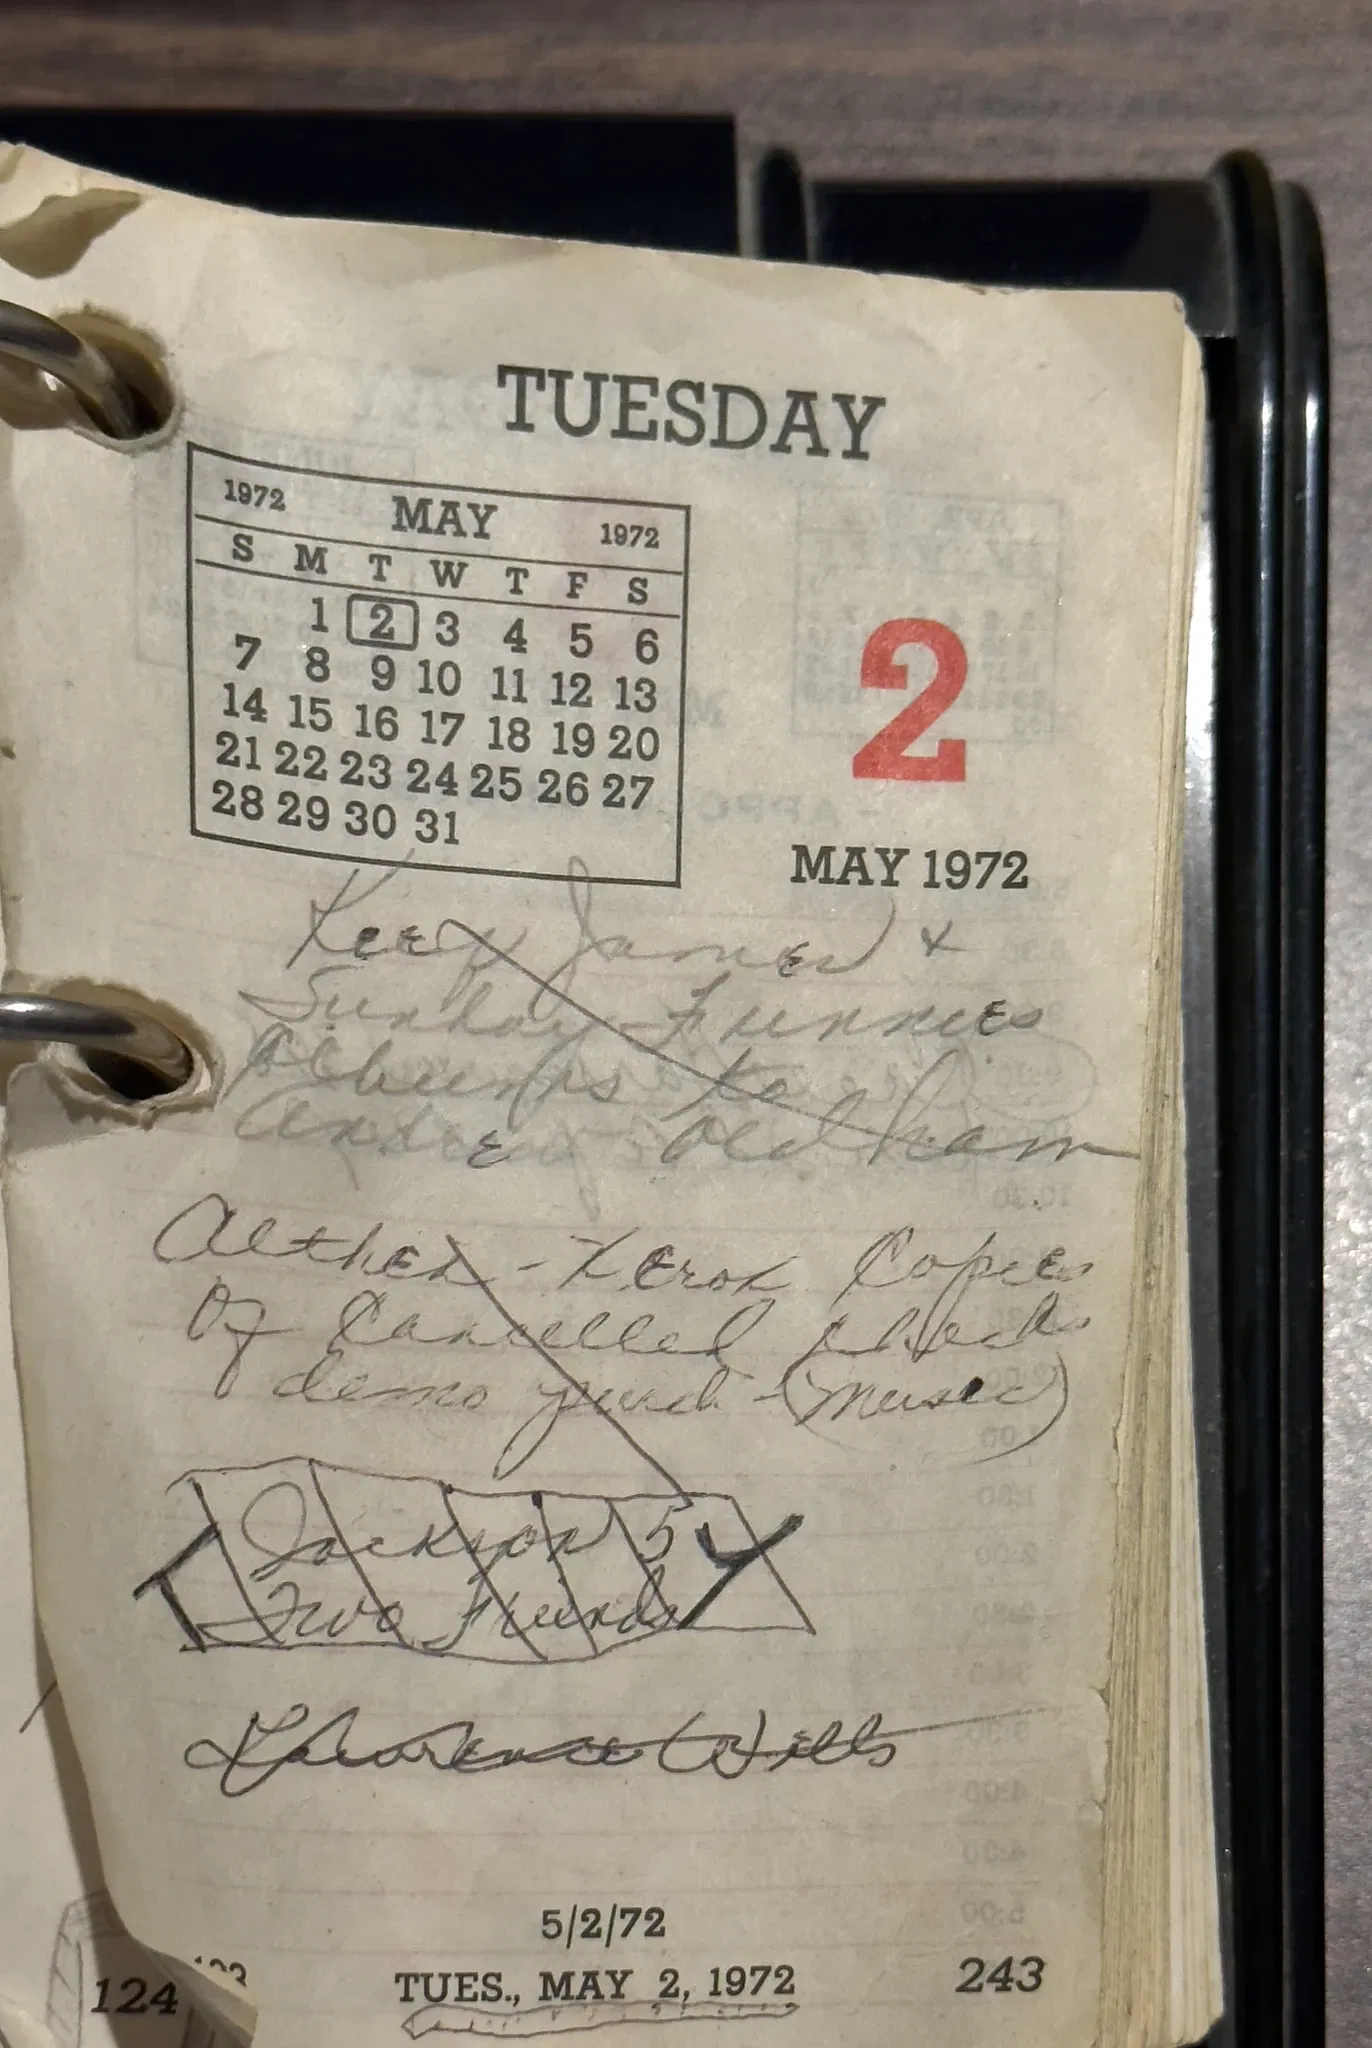 TUESDAY
1972 MAY 1972
S M T W T F S
1 2 3 4 5 6
7 8 9 10 11 12 13
14 15 16 17 18 19 20
21 22 23 24 25 26 27
28 29 30 31
2
MAY 1972
Keep James &
Sunday Funnies
Albums to
Andre Oldham
- Xerox Copies
Of Cancelled checks
demo - (Music)
Jackson 5
Two Friends
Lawrence
5/2/72
124 TUES., MAY 2, 1972 243